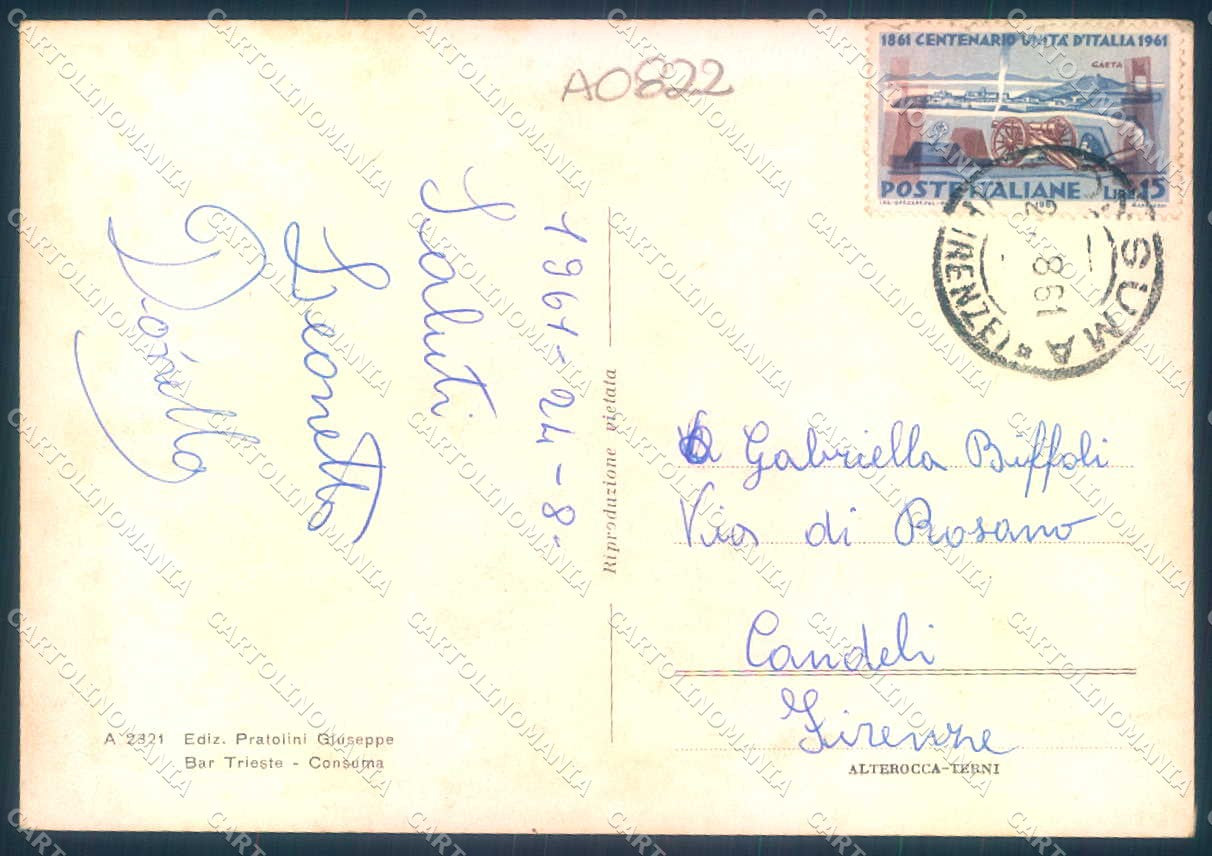 A0822
1861 CENTENARIO UNITA' D'ITALIA 1961
GAETA
POSTE ITALIANE LIRE 15
SUMA
(FIRENZE)
8 61
1961 - 24 - 8 -
Saluti
Leonetto
Donella
Riproduzione vietata
Gabriella Buffoli
Via di Rosano
Candeli
Firenze
A 2321 Ediz. Pratolini Giuseppe
Bar Trieste - Consuma
ALTEROCCA-TERNI
CARTOLINOMANIA